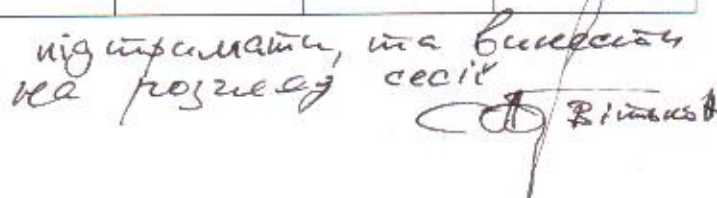 підтримати, та винести
на розгляд сесії
Вітько